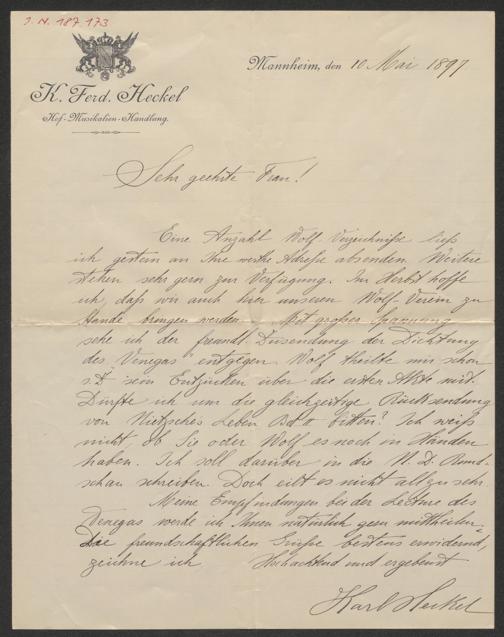 J. N. 187.173
Mannheim, den 10 Mai 1897
K. Ferd. Heckel
Hof-Musikalien-Handlung.
Sehr geehrte Frau!
Eine Anzahl Wolf Verzeichniße ließ
ich gestern an Ihre werthe Adresse absenden. Weitere
stehen sehr gern zur Verfügung. Im Herbst hoffe
ich, daß wir auch hier unseren Wolf-Verein zu
Stande bringen werden. Mit großer Spannung
sehe ich der freundl. Zusendung der Dichtung
des "Venegas" entgegen. Wolf theilte mir schon
s. Z. sein Entzücken über die ersten Akte mit.
Dürfte ich um die gleichzeitige Rücksendung
von Nietzsches Leben Bd. II bitten? Ich weiß
nicht ob Sie oder Wolf es noch in Händen
haben. Ich soll darüber in die N. D. Rund-
schau schreiben. Doch eilt es nicht allzu sehr.
Meine Empfindungen bei der Lectüre des
Venegas werde ich Ihnen natürlich gern mittheilen.
Die freundschaftlichen Grüße bestens erwidernd,
zeichne ich Hochachtend und ergebenst
Karl Heckel